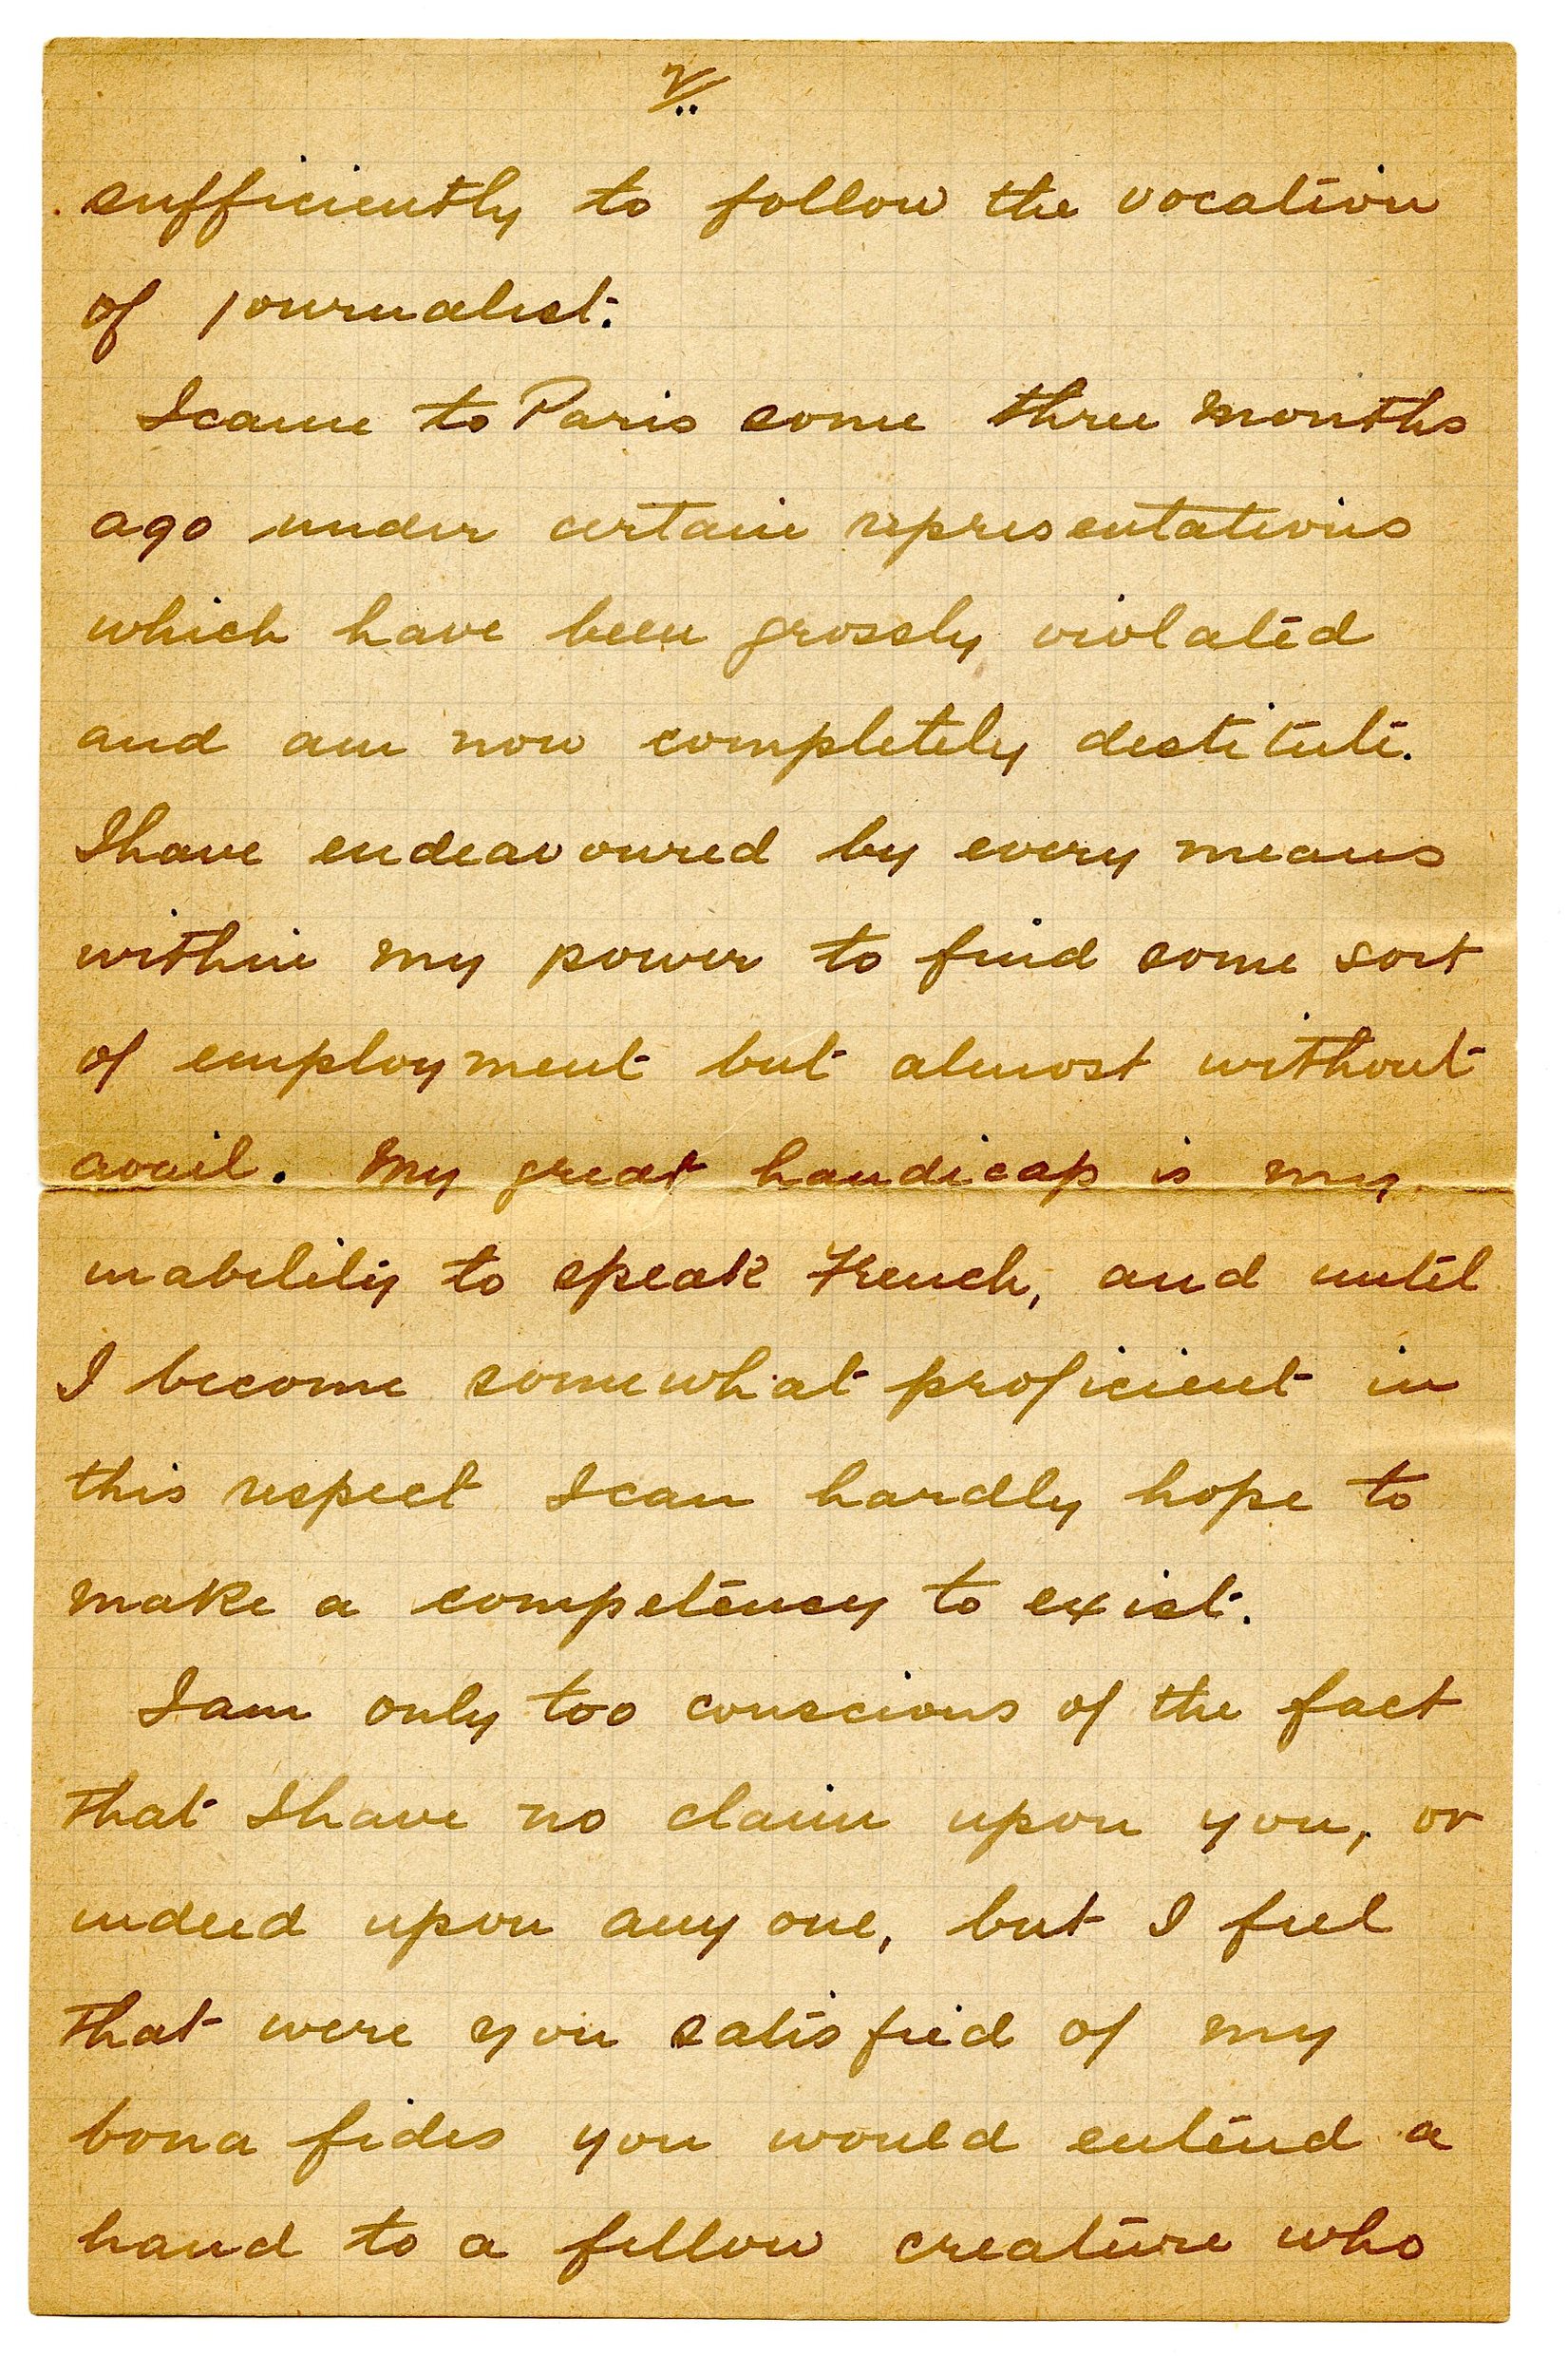 2/
sufficiently to follow the vocation
of journalist.
I came to Paris some three months
ago under certain representations
which have been grossly violated
and am now completely destitute.
I have endeavoured by every means
within my power to find some sort
of employment but almost without
avail. My great handicap is my
inability to speak French, and until
I become somewhat proficient in
this respect I can hardly hope to
make a competency to exist.
I am only too conscious of the fact
that I have no claim upon you, or
indeed upon any one, but I feel
that were you satisfied of my
bona fides you would extend a
hand to a fellow creature who